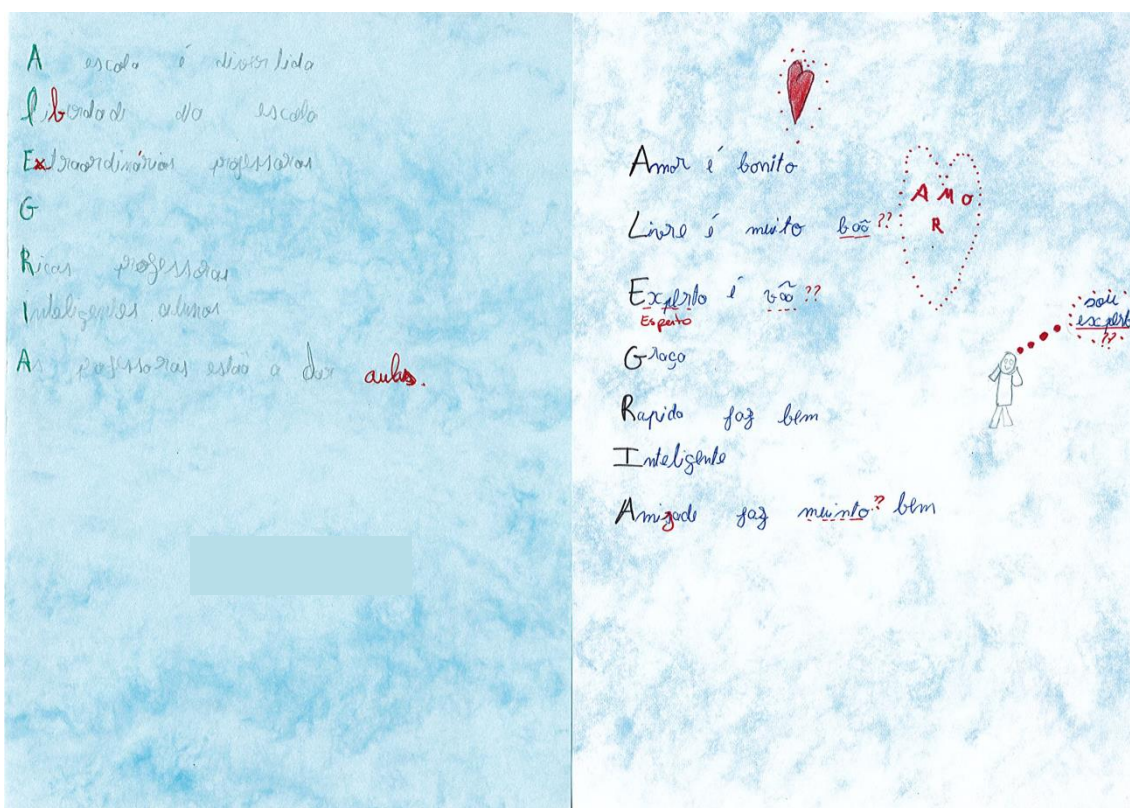 A escola é divertida
liberdade da escola
Extraordinárias professoras
G
Ricas professoras
Inteligentes alunos
As professoras estão a dar aulas.
Amor é bonito
AMO
R
Livre é muito boô ??
Experto é vôo ??
Esperto
sou
experto
??
Graça
Rapido faz bem
Inteligente
Amizade faz muinto ?? bem